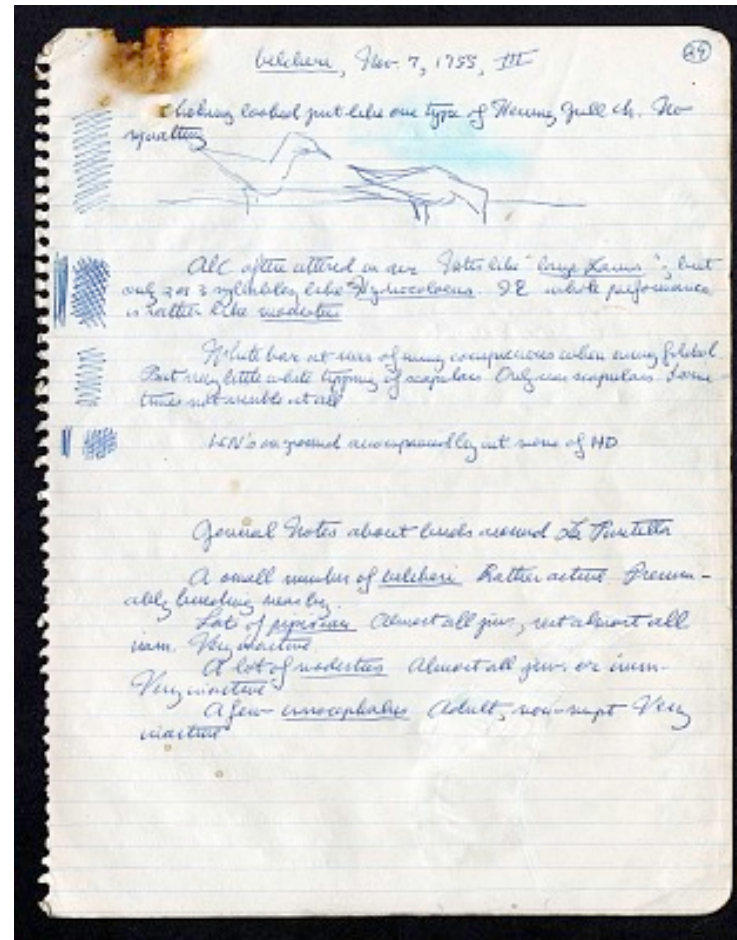 belcheri, Nov. 7, 1955, III
29
Choking looked just like one type of Herring Gull ch. No
ALC often uttered in air. Notes like "large Larus", but
only 2 or 3 syllables, like Hydrocoloeus. I.E. whole performance
is rather like modestus
White bar at rear of wing conspicuous when wing folded.
But very little white tipping of scapulars. Only rear scapulars. Some-
times not visible at all
HN's on ground accompanied by none of HD
General Notes about birds around La Puntilla
A small number of belcheri. Rather active. Presum-
ably breeding nearby.
Lot of Almost all juv., not almost all
imm. Very inactive.
A lot of modestus Almost all juv. or imm.
Very inactive
A few Adult, non-rept Very
inactive